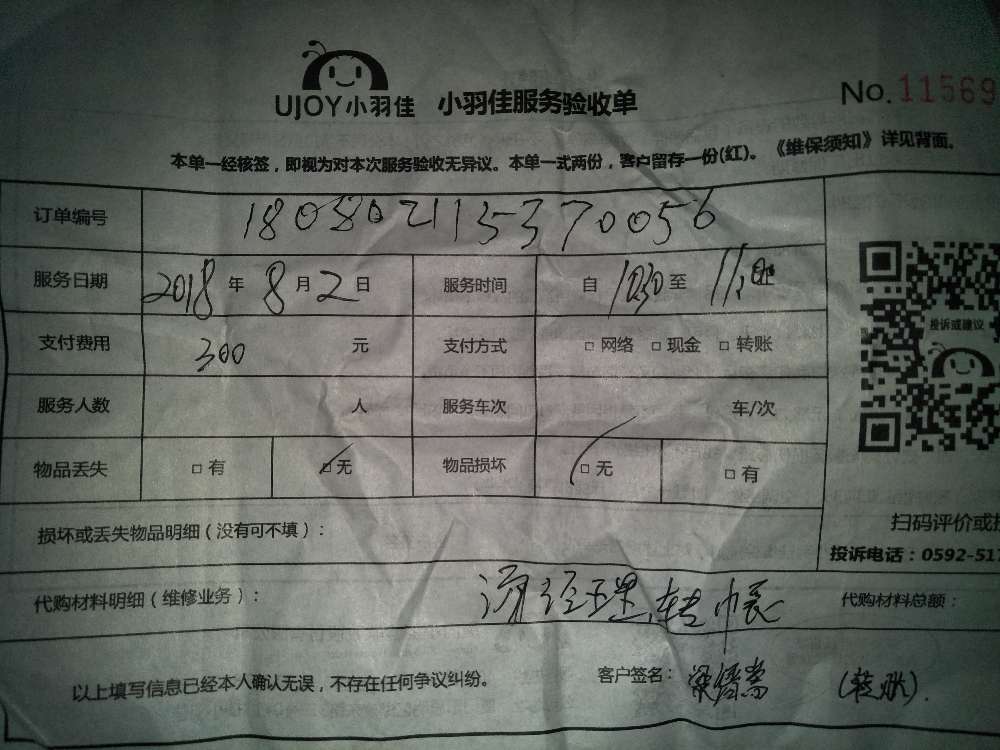 UJOY小羽佳 小羽佳服务验收单 No.11569
本单一经核签，即视为对本次服务验收无异议。本单一式两份，客户留存一份(红)。《维保须知》详见背面。
订单编号 180802115370056
服务日期 2018年8月2日 服务时间 自1030至11
支付费用 300元 支付方式 □网络 □现金 □转账
服务人数 人 服务车次 车/次
物品丢失 □有 □无 物品损坏 □无 □有
投诉或建议
损坏或丢失物品明细（没有可不填）：
扫码评价或
投诉电话：0592-51
代购材料明细（维修业务）： 经理转帐 代购材料总额：
以上填写信息已经本人确认无误，不存在任何争议纠纷。 客户签名： 梁 (转账).